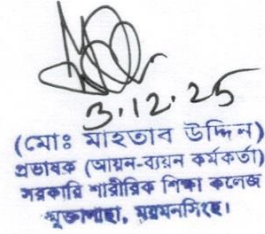 3.12.25
(মোঃ মাহতাব উদ্দিন)
প্রভাষক (আয়ন-ব্যয়ন কর্মকর্তা)
সরকারি শারীরিক শিক্ষা কলেজ
মুক্তাগাছা, ময়মনসিংহ।